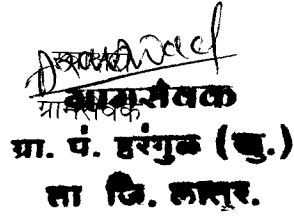 ग्रामसेवक
ग्रामसेवक
ग्रा. पं. हरंगुळ (खु.)
ता जि. लातूर.